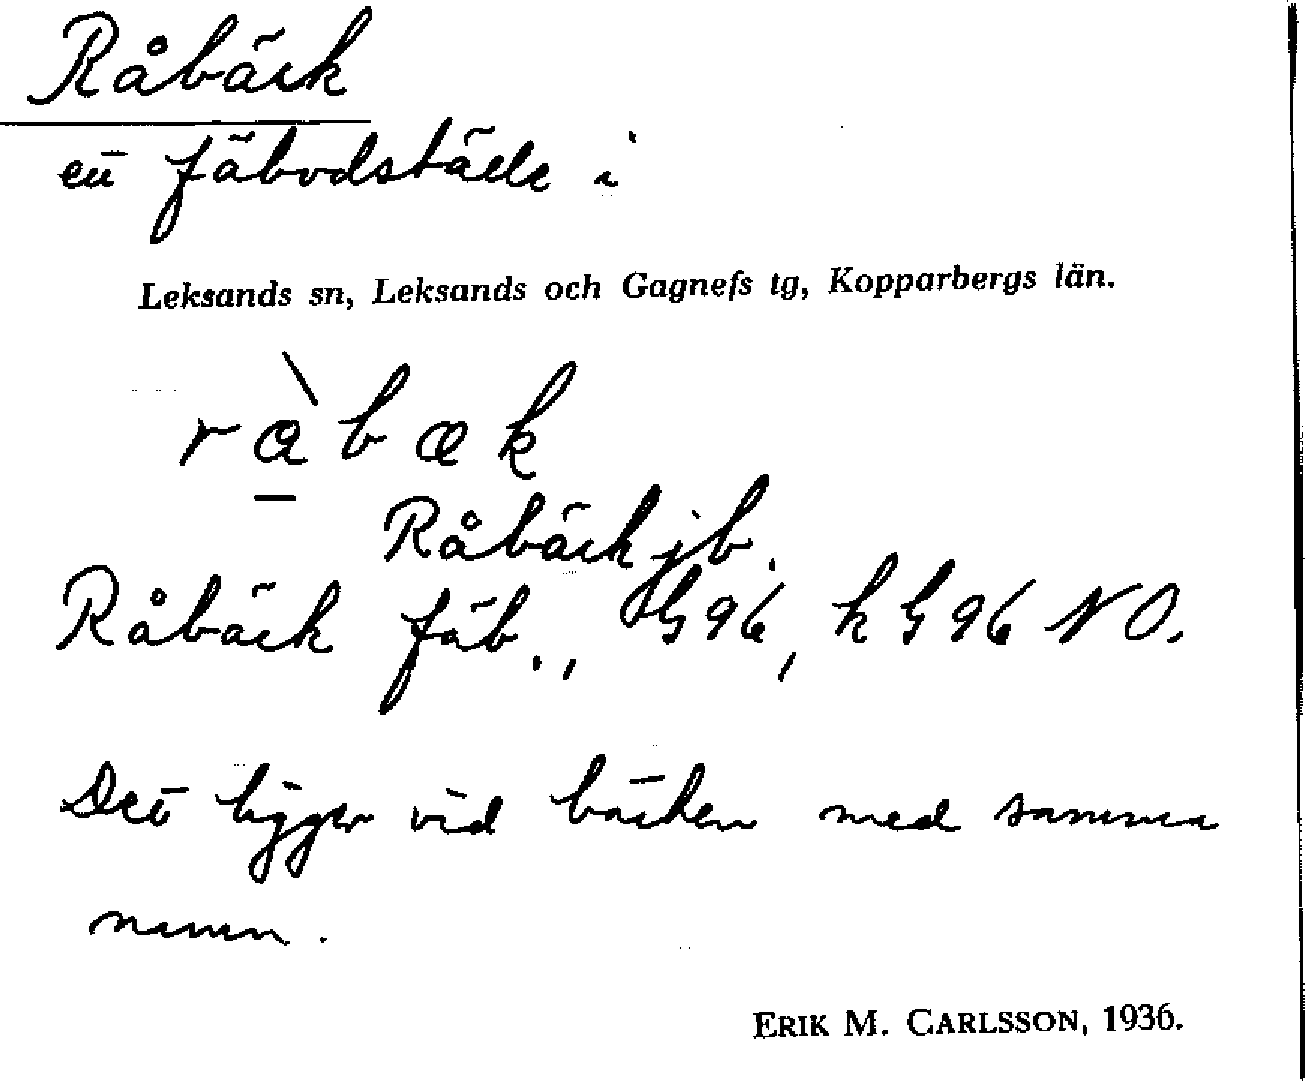 Råbäck
ett fäbodställe i
Leksands sn, Leksands och Gagnefs tg, Kopparbergs län.
ràbæk
Råbäck jb.
Råbäck fäb., G96, k G96 NO.
Det ligger vid bäcken med samma
namn.
ERIK M. CARLSSON, 1936.